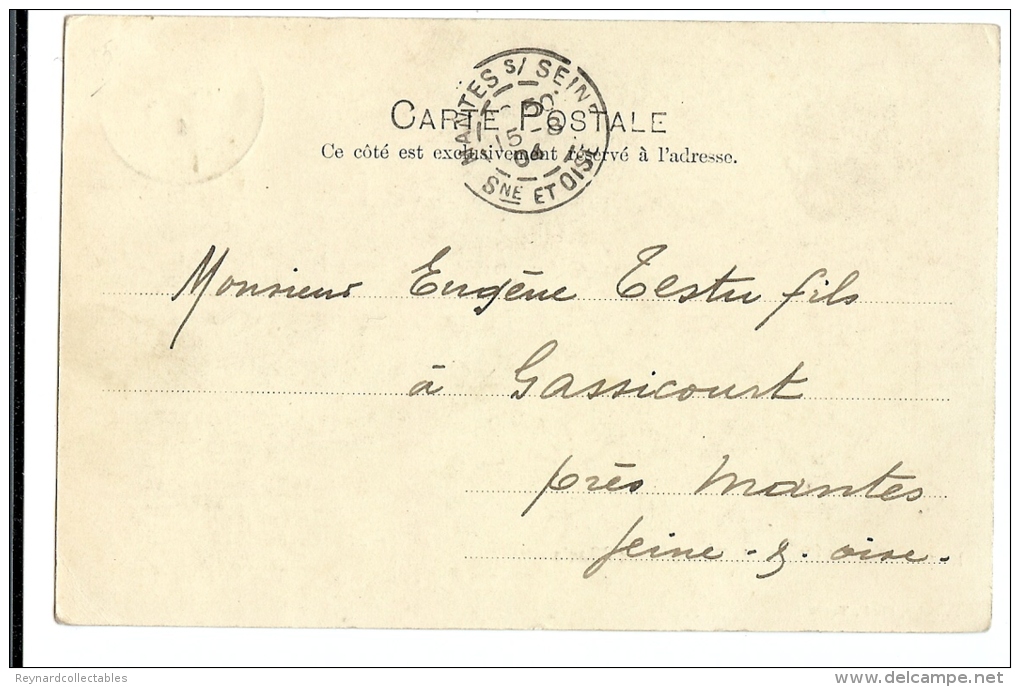 CARTE POSTALE
Ce côté est exclusivement réservé à l'adresse.
MANTES S/ SEINE
15 -8
04
SNE ET OISE
Monsieur Eugène Testu fils
à Gassicourt
près Mantes
Seine - & - oise -
Reynardcollectables
www.delcampe.net